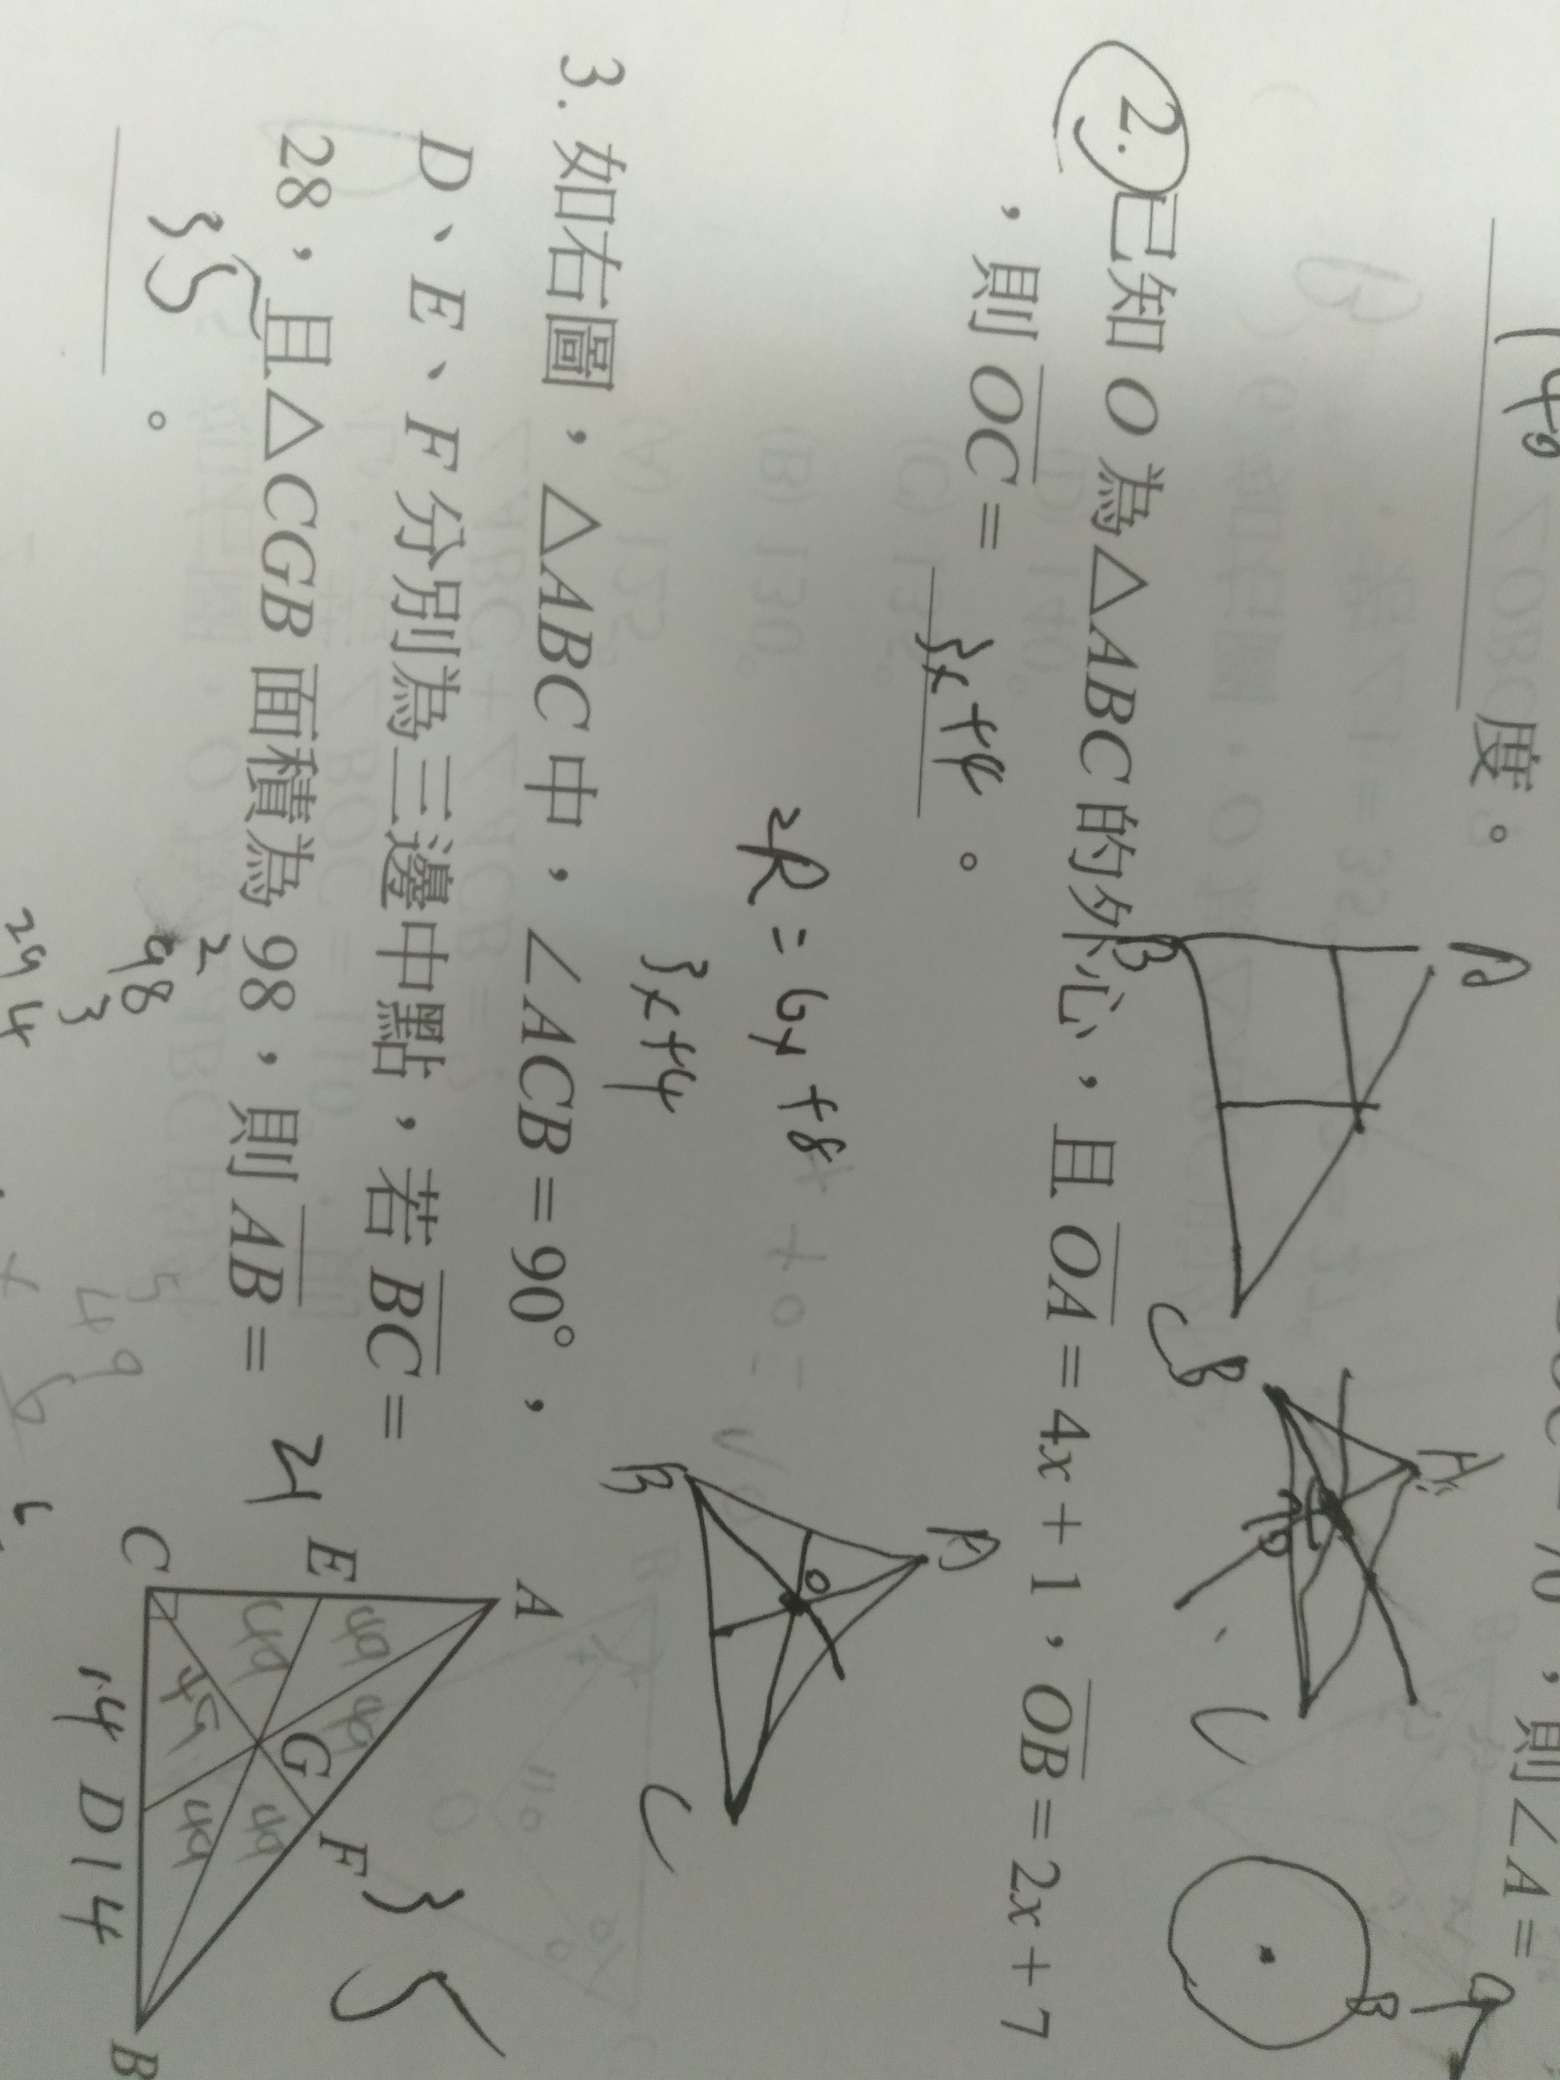 140
度。
2. 已知 O 為△ABC 的外心，且 OA = 4x + 1，OB = 2x + 7
，則 OC = 3x+4 。
2R = 6x + 8
3x+4
A
B
C
A
B
C
A
B
O
C
B
3. 如右圖，△ABC 中，∠ACB = 90°，
D、E、F 分別為三邊中點，若 BC =
28，且△CGB 面積為 98，則 AB =
35 。
21
98
3
294
2
A
E
C
D
B
F
G
49
49
49
49
49
49
14
14
35
，則∠A =